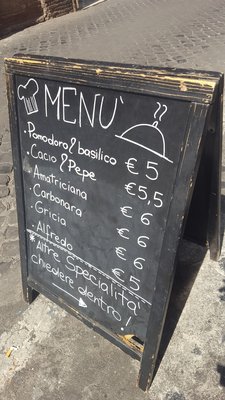 MENU`
· Pomodoro & basilico € 5
· Cacio & Pepe € 5,5
· Amatriciana € 6
· Carbonara € 6
· Gricia € 6
· Alfredo € 5
* Altre Specialità
chiedere dentro!